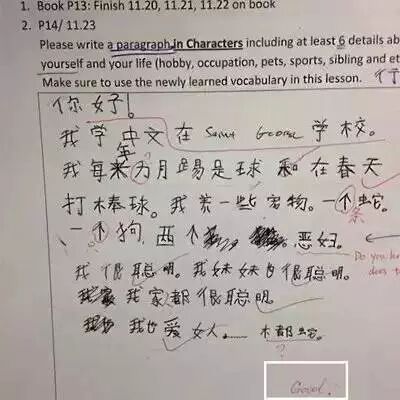 1. Book P13: Finish 11.20, 11.21, 11.22 on book
2. P14/ 11.23
Please write a paragraph in Characters including at least 6 details ab
yourself and your life (hobby, occupation, pets, sports, sibling and et
Make sure to use the newly learned vocabulary in this lesson.
你好!
我学中文在 Saint George 学校。
我每 月踢是球和在春天
打棒球。我养一些宠物。一个蛇。
条
一个狗 两个 恶妇。
我很聪明。我妹妹也很聪明。
Do you
does
我家都很聪明。
我也爱女人…… 都蛇。
?
Good!